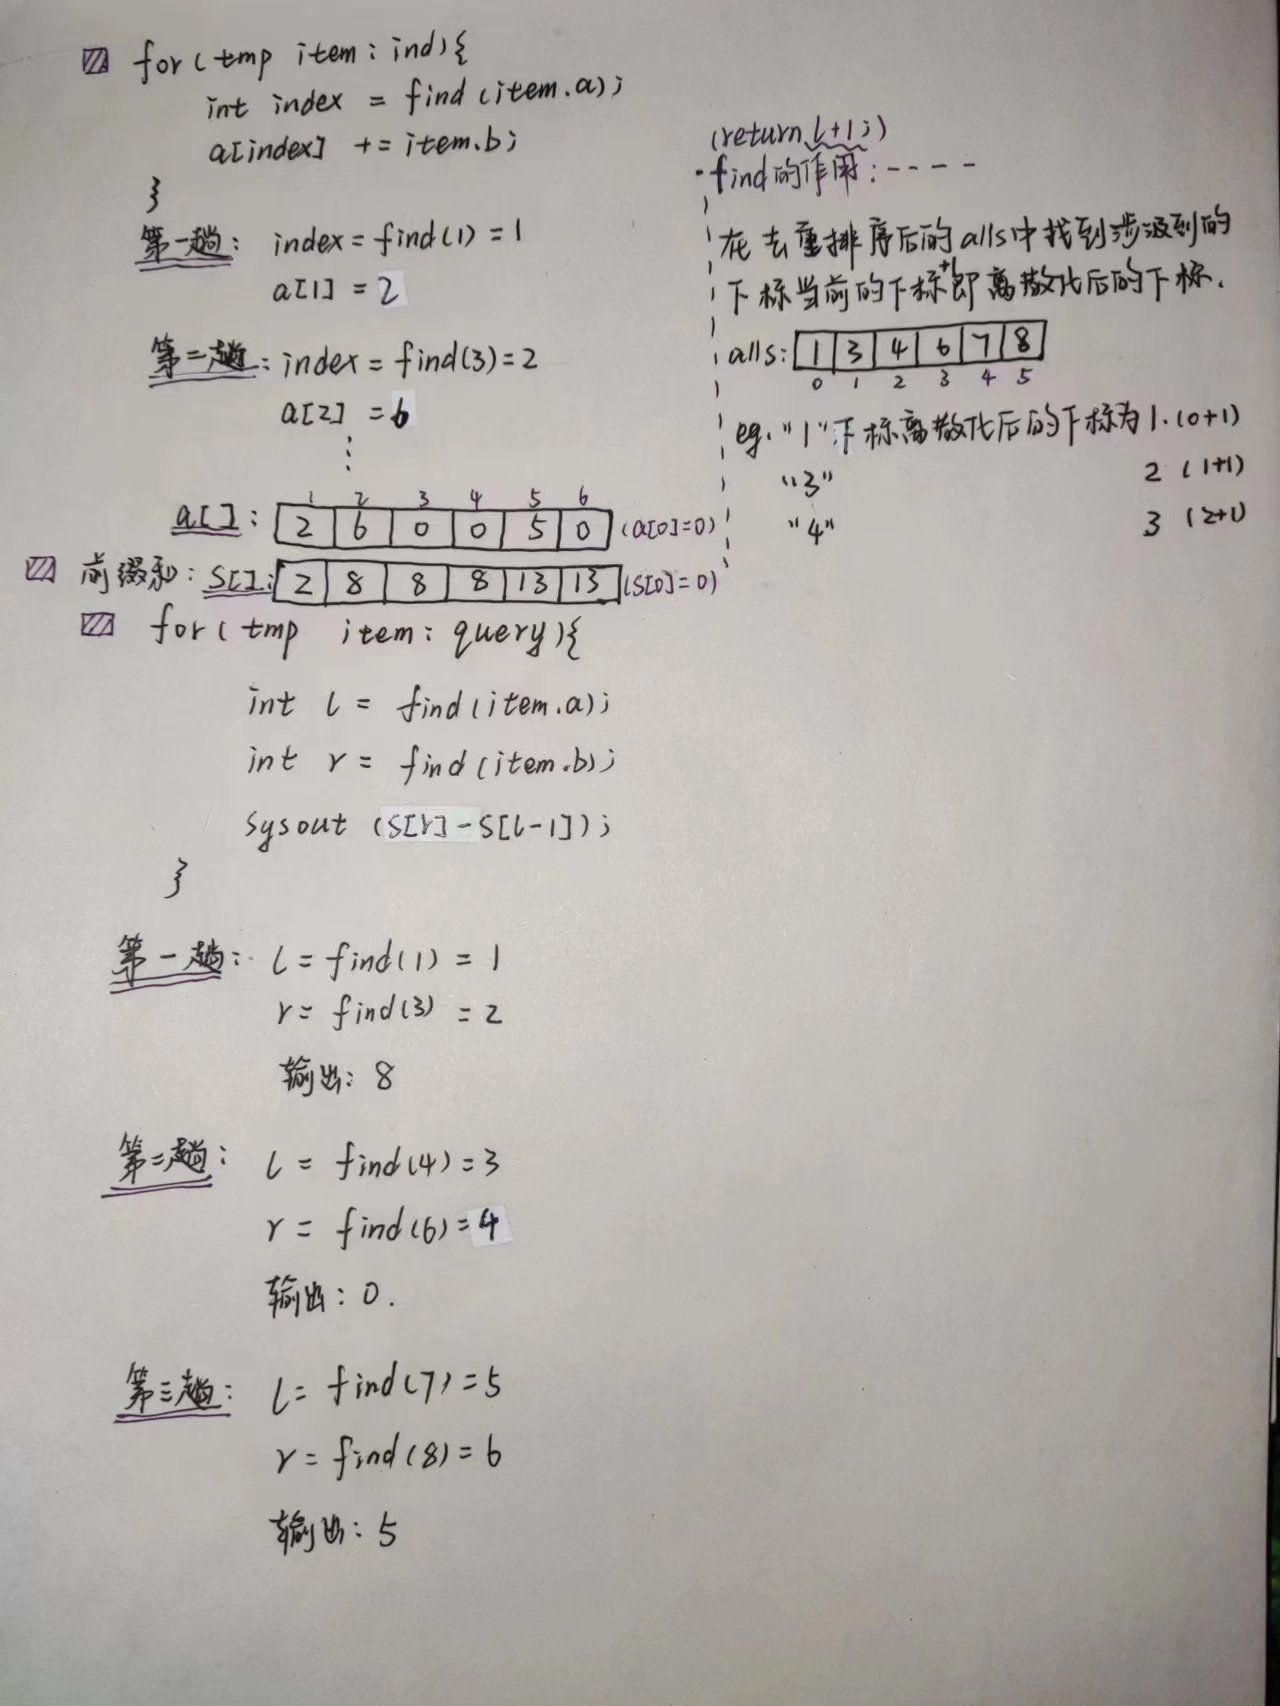 for(tmp item: ind){
int index = find(item.a);
a[index] += item.b;
}
第一趟: index = find(1) = 1
a[1] = 2
第二趟: index = find(3) = 2
a[2] = 6
⋮
1 2 3 4 5 6
a[]: 2 6 0 0 5 0 (a[0]=0)
前缀和: S[]: 2 8 8 8 13 13 (S[0]=0)
for(tmp item: query){
int l = find(item.a);
int r = find(item.b);
Sysout (S[r]-S[l-1]);
}
第一趟: l = find(1) = 1
r = find(3) = 2
输出: 8
第二趟: l = find(4) = 3
r = find(6) = 4
输出: 0.
第三趟: l = find(7) = 5
r = find(8) = 6
输出: 5
(return l+1;)
·find的作用: - - - -
在去重排序后的alls中找到涉及到的
下标当前的下标+1即离散化后的下标.
alls: 1 3 4 6 7 8
0 1 2 3 4 5
eg. "1"下标离散化后的下标为1. (0+1)
"3" 2 (1+1)
"4" 3 (2+1)